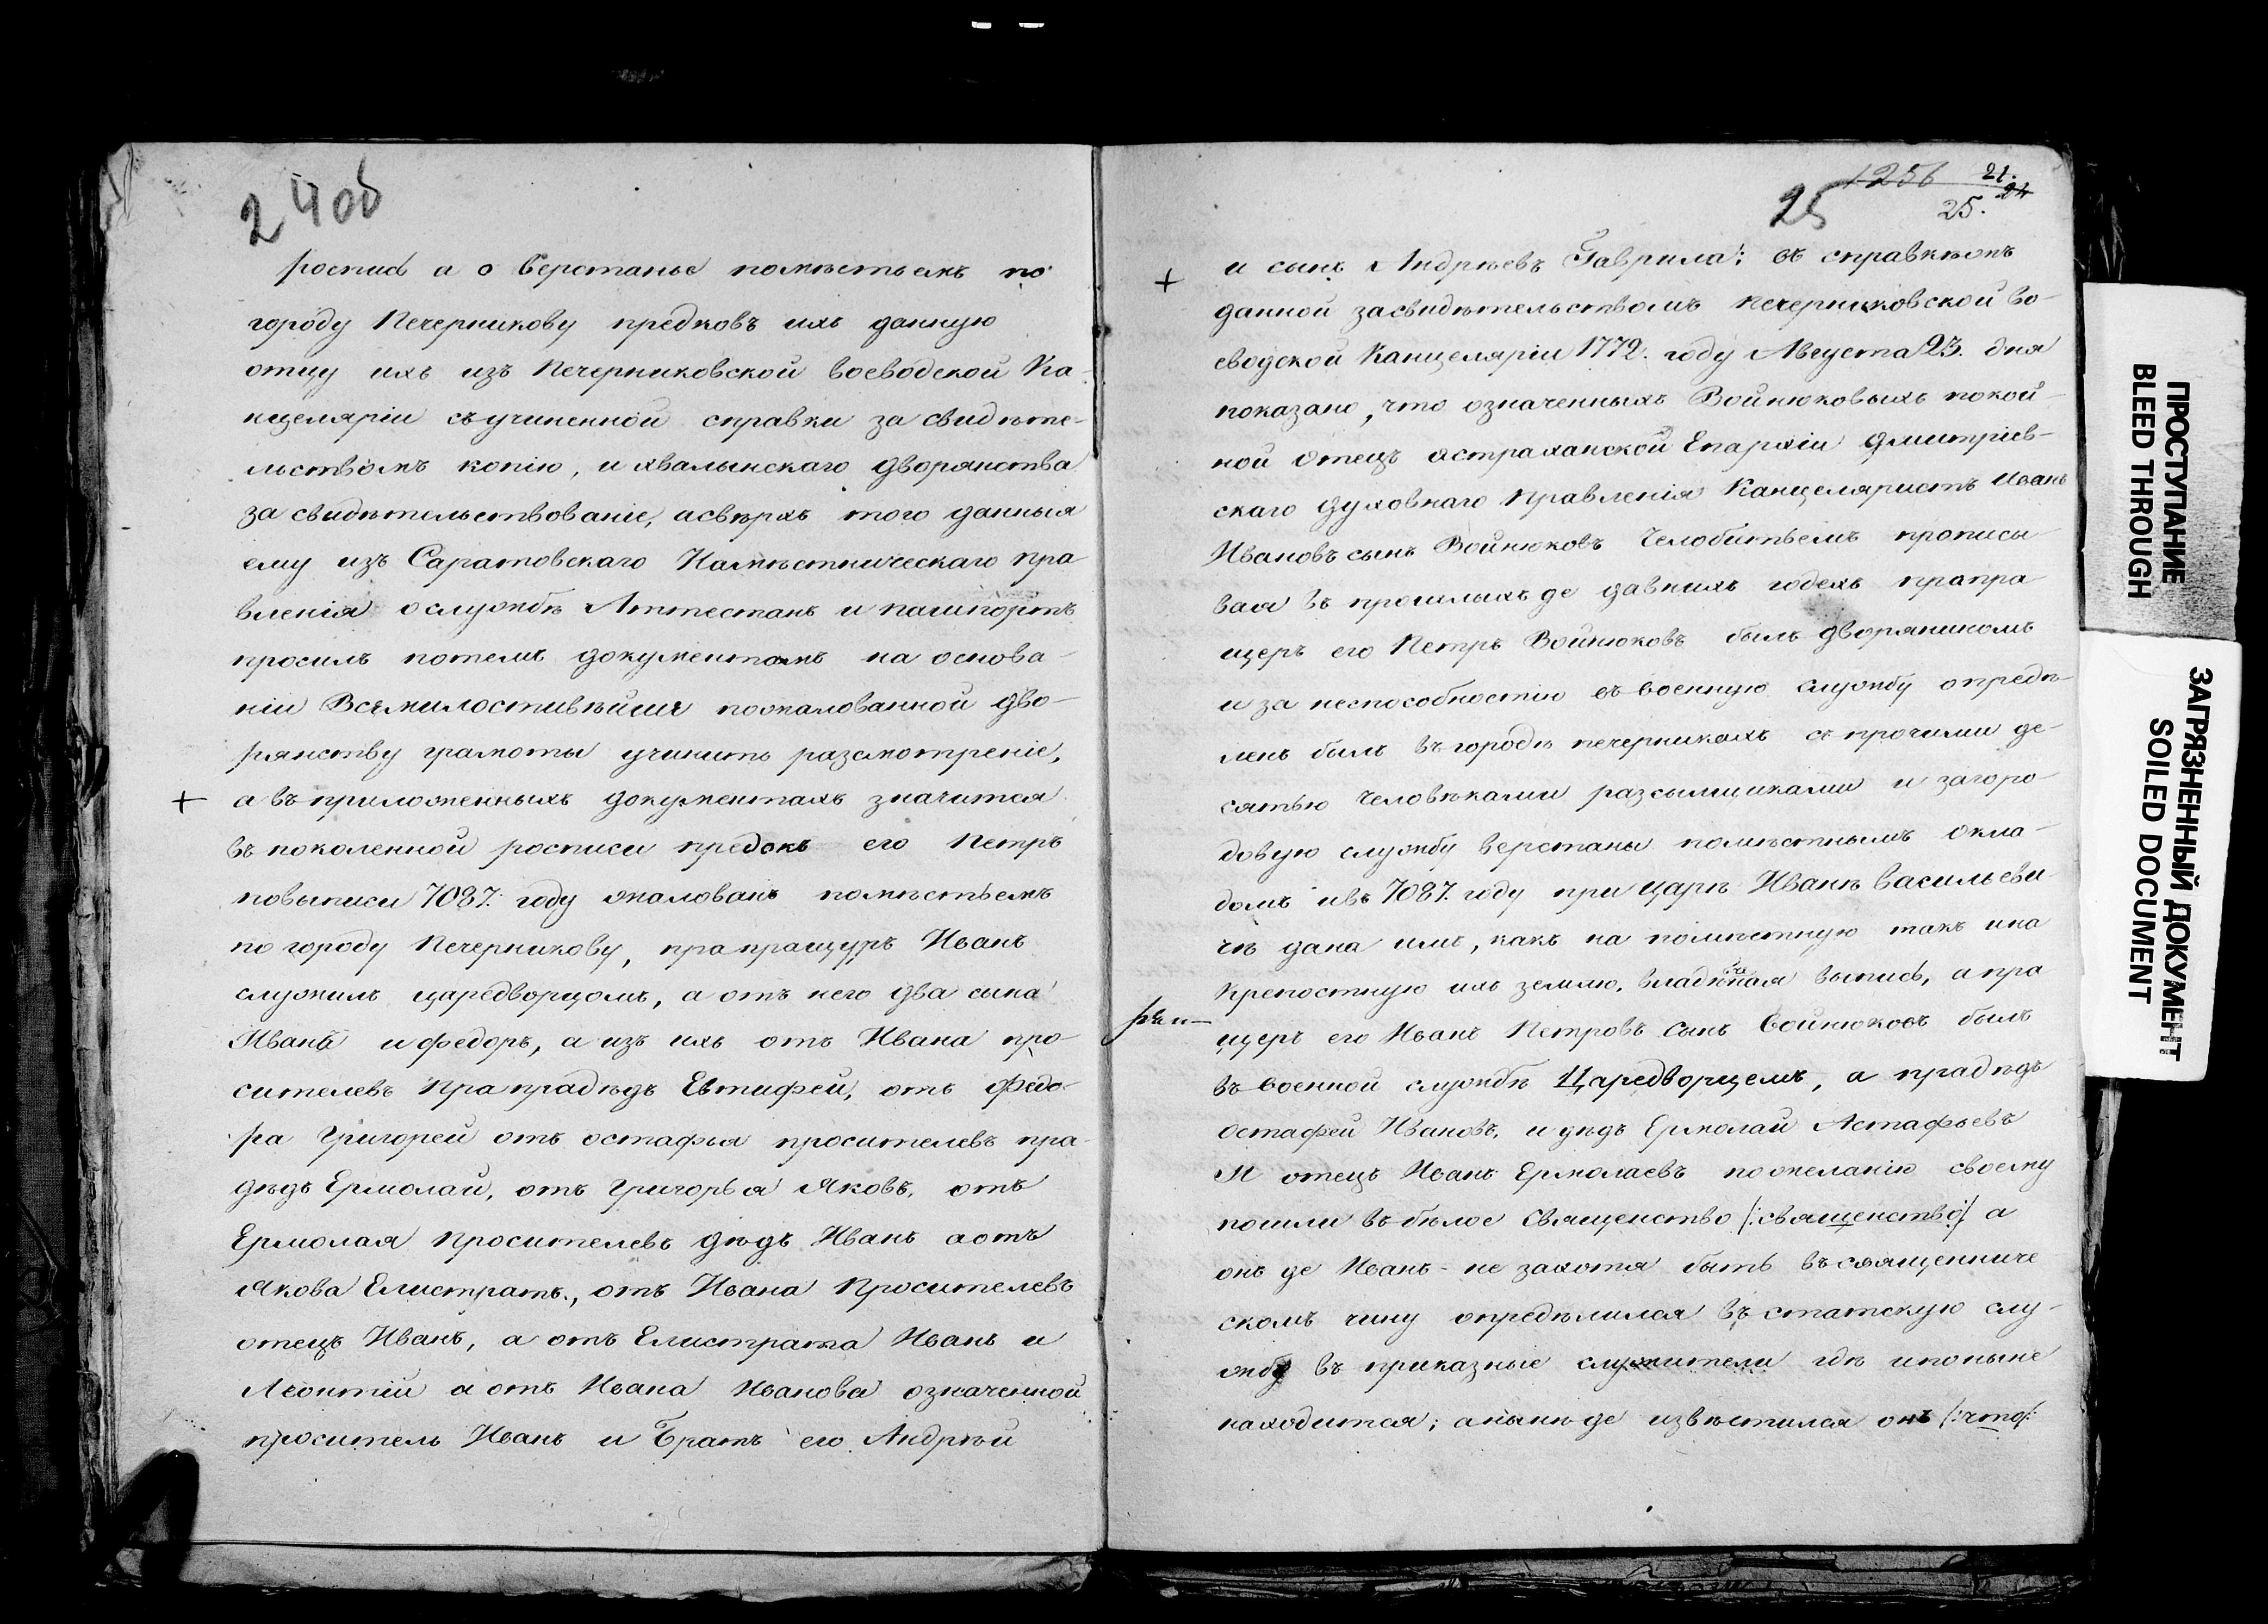 24об
роспись а о верстанье поместьемъ по
городу Печерникову предковъ ихъ данную
отцу ихъ изъ Печерниковской воеводской Ка-
нцеляріи съучиненной справки за свидѣте-
льствомъ копію, и хвалынскаго дворянства
за свидѣтельствованіе, асверхъ того данныя
ему изъ Саратовскаго Намѣстническаго пра
вленія ослужбѣ Аттестатъ и пашпортъ
просилъ потемъ документомъ на основа-
ніи Всемилостивѣйше пожалованной дво-
рянству грамоты учинить разсмотреніе,
+ а въ приложенныхъ документахъ значится
въ поколенной росписи предокъ его Петръ
повыписи 7087. году жалованъ помѣстьемъ
по городу Печерникову, прапращуръ Иванъ
служилъ царедворцомъ, а отъ него два сына
Иванъ и федоръ, а изъ ихъ отъ Ивана про-
сителевъ прапрадѣдъ Евтифей, отъ Федо-
ра Григорей отъ остафья просителевъ пра-
дѣдъ Ермолай, отъ Григорья Яковъ, отъ
Ермолая просителевъ дѣдъ Иванъ аотъ
Якова Елистратъ, отъ Ивана Просителевъ
отецъ Иванъ, а отъ Елистрата Иванъ и
Леонтій а отъ Ивана Иванова означенной
проситель Иванъ и Братъ его Андрѣй
25 1256 21. 24
25.
+ и сынъ Андрѣевъ Гаврила; въ справкѣжъ
данной засвидѣтельствомъ печерниковской во-
еводской Канцеляріи 1772. году Августа 23. дня
показано, что означенныхъ Войнюковыхъ покой-
ной отецъ астраханской Епархіи дмитріев-
скаго духовнаго правленія Канцеляристъ Иванъ
Ивановъ сынъ Войнюковъ Челобитьемъ прописы
вая въ прошлыхъ де давнихъ годехъ прапра
щеръ его Петръ Войнюковъ былъ дворяниномъ
и за неспособностію въ военную службу опредѣ-
ленъ былъ въ городѣ печерникахъ съ прочими де-
сятью человѣками разсыльщиками и загоро-
довую службу верстаны помѣстнымъ окла-
домъ ивъ 7087. году при царѣ Иванѣ васильеви
чѣ дана имъ, какъ на помѣстную такъ ина
крепостную ихъ землю, владѣная выпись, а пра
щеръ его Иванъ Петровъ сынъ Войнюковъ былъ
въ военной службѣ Царедворцемъ, а прадѣдъ
остафей Ивановъ, и дѣдъ Ермолай Астафьевъ
И отецъ Иванъ Ермолаевъ пожеланію своему
пошли въ бѣлое священство /:священство:/ а
онъ де Иванъ не захотя быть въ священниче
скомъ чину опредѣлился въ статскую слу-
жбу въ приказные служители гдѣ ипоныне
находится; анынѣ де извѣстился онъ /:что/:
ПРОСТУПАНИЕ
BLEED THROUGH
ЗАГРЯЗНЕННЫЙ ДОКУМЕНТ
SOILED DOCUMENT